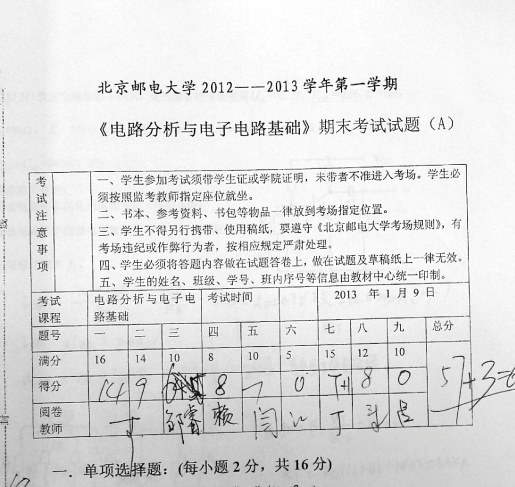 北京邮电大学 2012——2013 学年第一学期
《电路分析与电子电路基础》期末考试试题（A）
考试注意事项
一、学生参加考试须带学生证或学院证明，未带者不准进入考场。学生必
须按照监考教师指定座位就坐。
二、书本、参考资料、书包等物品一律放到考场指定位置。
三、学生不得另行携带、使用稿纸，要遵守《北京邮电大学考场规则》，有
考场违纪或作弊行为者，按相应规定严肃处理。
四、学生必须将答题内容做在试题答卷上，做在试题及草稿纸上一律无效。
五、学生的姓名、班级、学号、班内序号等信息由教材中心统一印制。
考试课程 电路分析与电子电路基础 考试时间 2013 年 1 月 9 日
题号 一 二 三 四 五 六 七 八 九 总分
满分 16 14 10 8 10 5 15 12 10
得分 14 9 8 0 8 0 57+3=6
阅卷教师
一．单项选择题：(每小题 2 分，共 16 分)